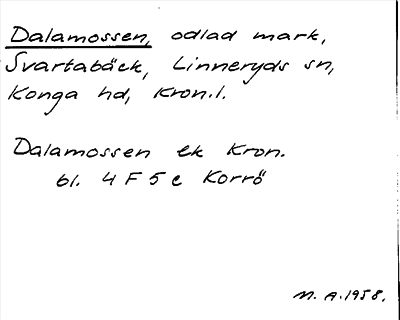 Dalamossen, odlad mark,
Svartabäck, Linneryds sn,
Konga hd, Kron.l.
Dalamossen ek Kron.
bl. 4 F 5 e Korrö
M. A. 1958.